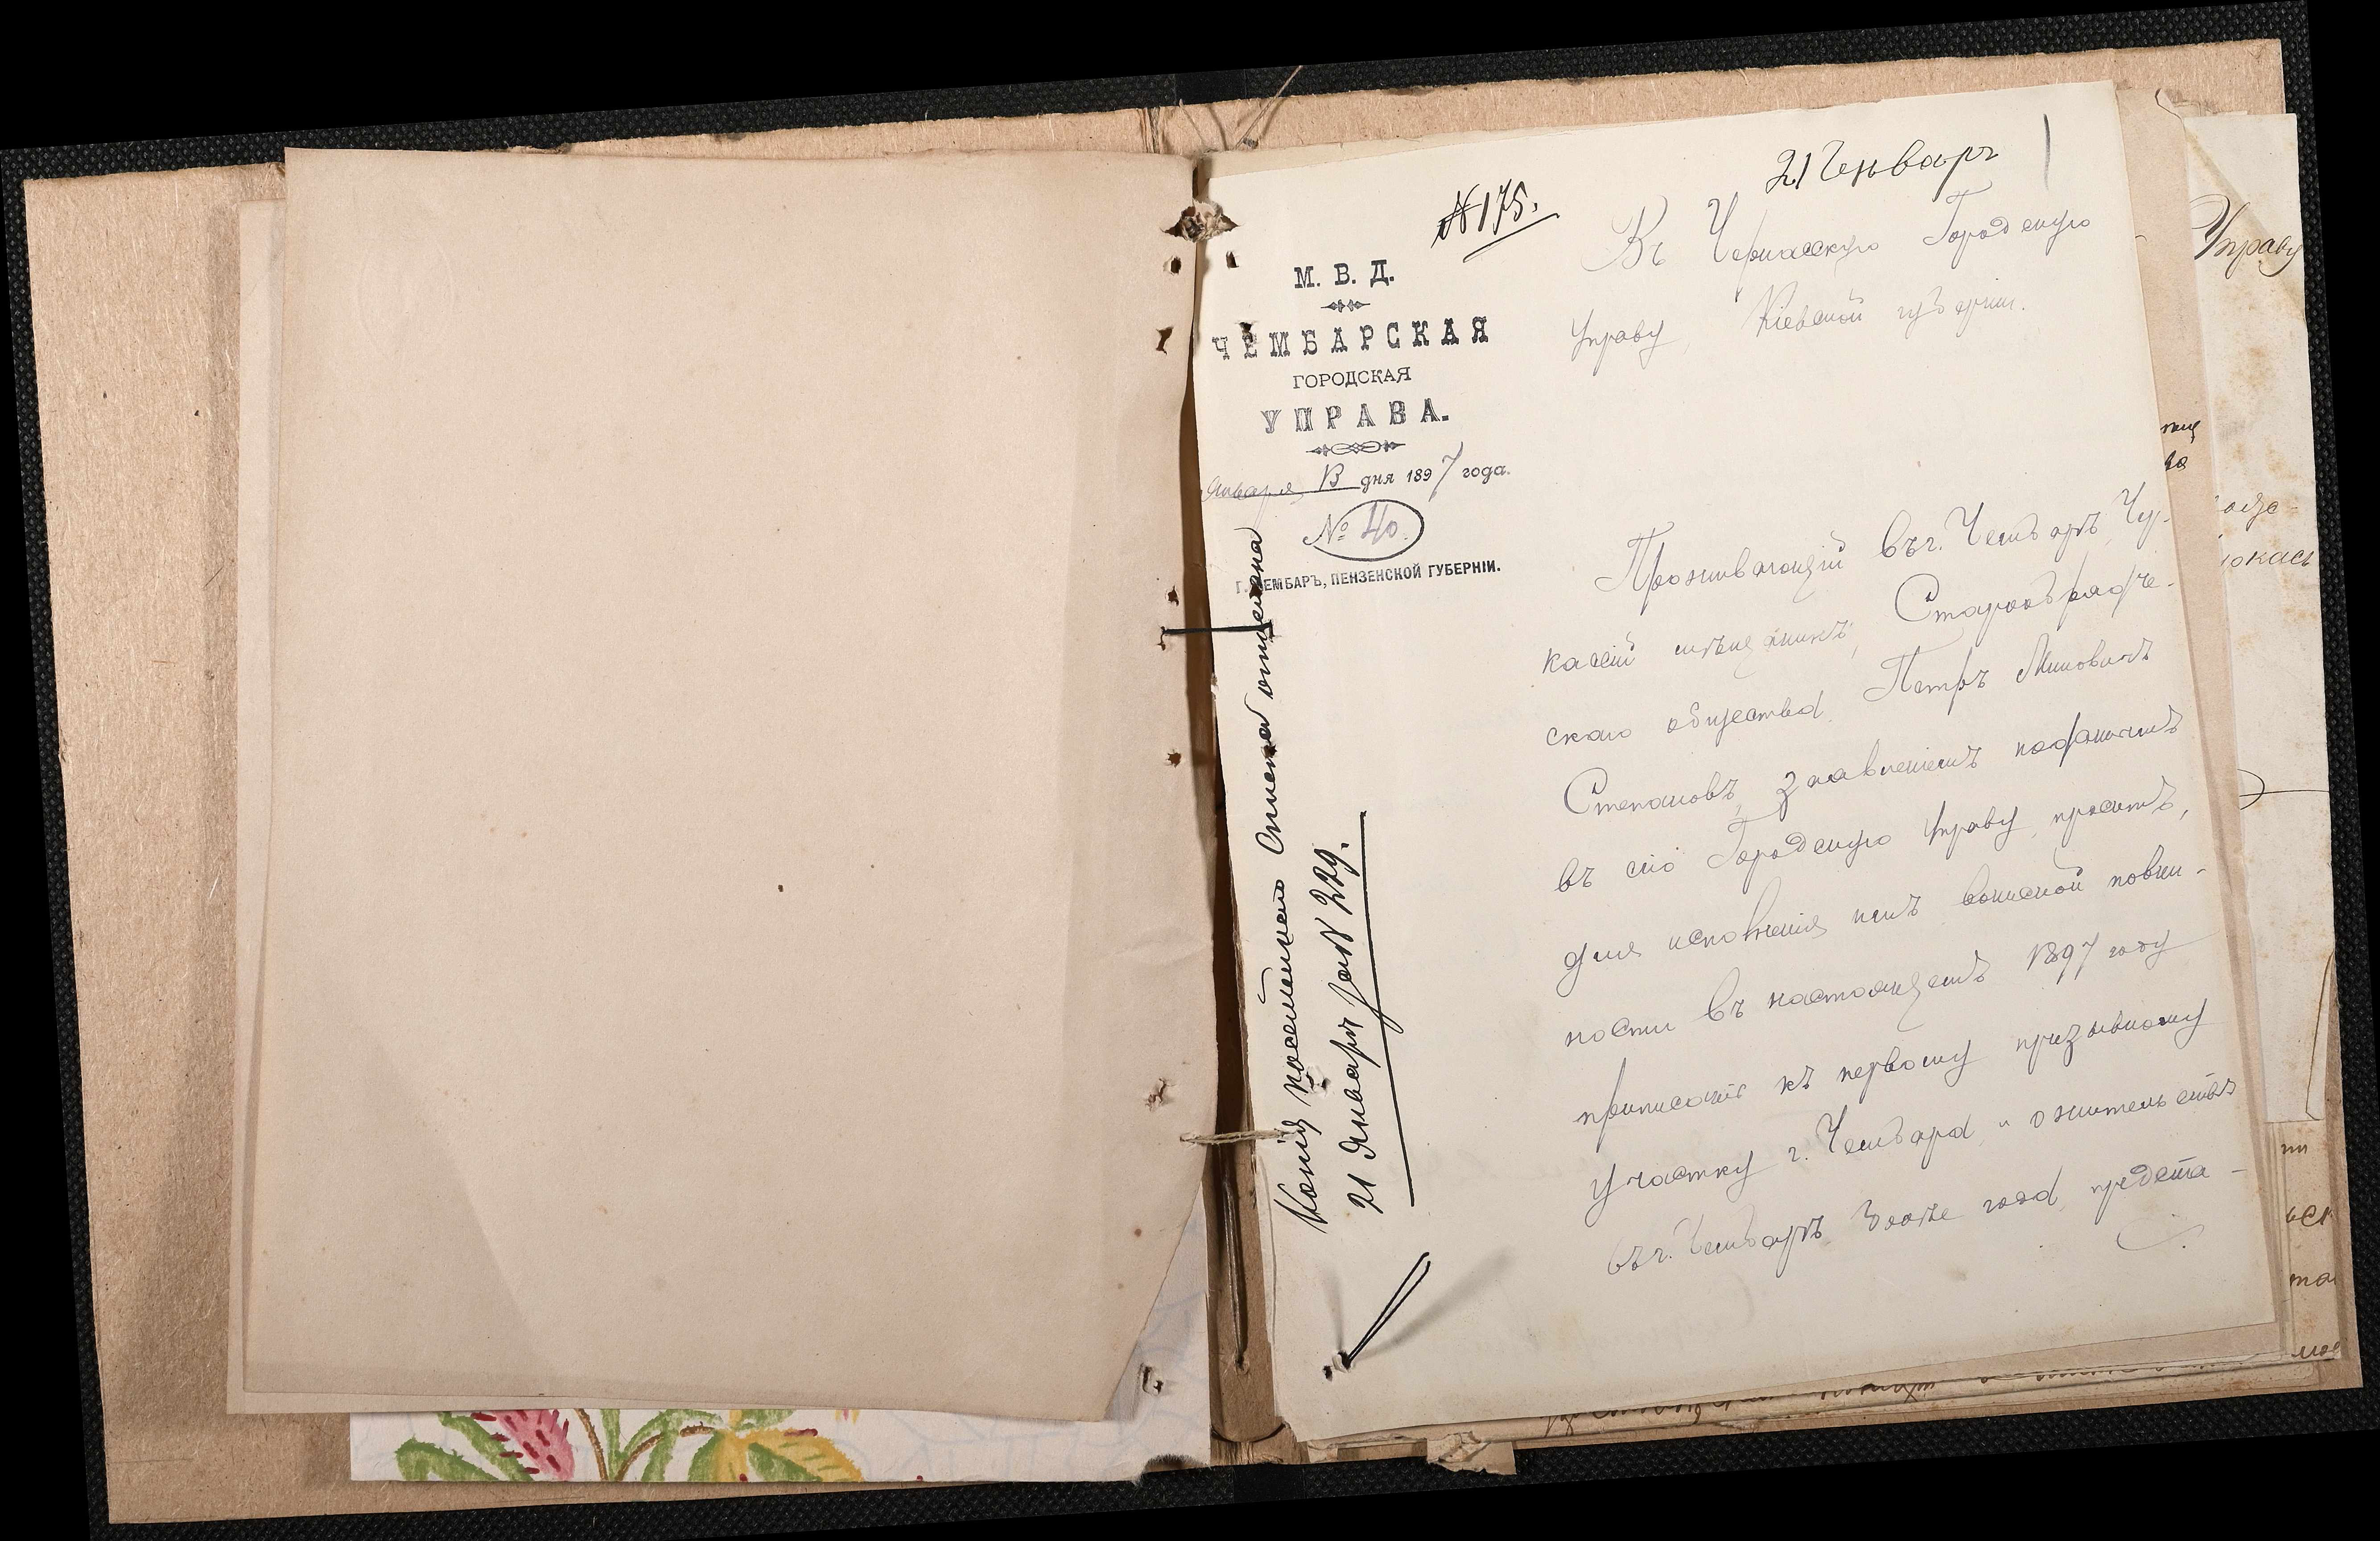 21 Генваря
№ 175.
Въ Черкасскую Городскую
Управу Кіевской губерніи.
М. В. Д.
ЧЕМБАРСКАЯ
ГОРОДСКАЯ
УПРАВА.
Января 13 дня 1897 года.
№ 40.
Г. ЧЕМБАРЪ, ПЕНЗЕНСКОЙ ГУБЕРНІИ.
Проживающій въ г. Чембарѣ,
мѣщанинъ, Старообрядче-
скаго общества, Петръ Миновичъ
Степановъ, заявленіемъ поданнымъ
въ сію Городскую Управу, проситъ,
для исполненія имъ воинской повин-
ности въ настоящемъ 1897 году
приписать къ первому призывному
участку г. Чембара, и о жительствѣ
въ г. Чембарѣ, болѣе года, предста-
Копія посемейнаго Списка отправлена
21 Января за № 229.
Управу